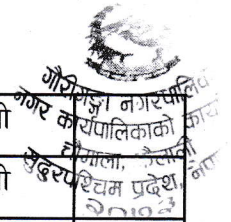 गौरीगङ्गा नगरपालि
नगर कार्यपालिकाको कार्या
चौमाला, कैलाली
सुदुरपश्चिम प्रदेश, नेपा
२०७३
ी
ी